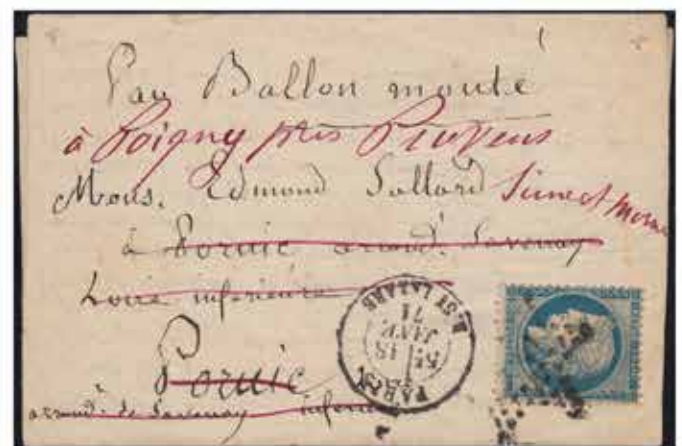 Par Ballon monté
à Poigny près Provins
Mons. Edmond Sollard Seine et Marne
à Pornic arrond. Savenay
Loire inferieure
Pornic
arrond. de Savenay inferieure
PARIS
5E 18
JANV.
71
R. ST LAZARE